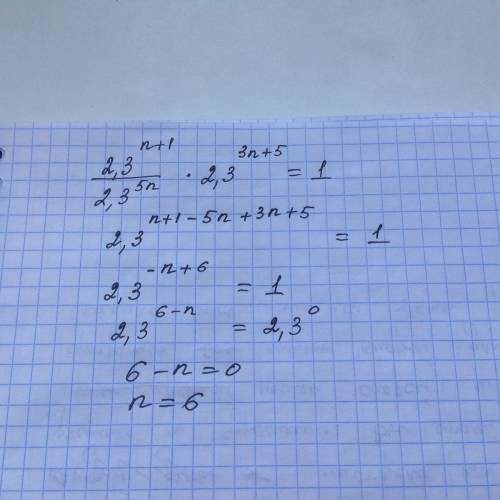 2,3^{n+1} / 2,3^{5n} · 2,3^{3n+5} = 1
2,3^{n+1-5n+3n+5} = 1
2,3^{-n+6} = 1
2,3^{6-n} = 2,3^{0}
6 - n = 0
n = 6